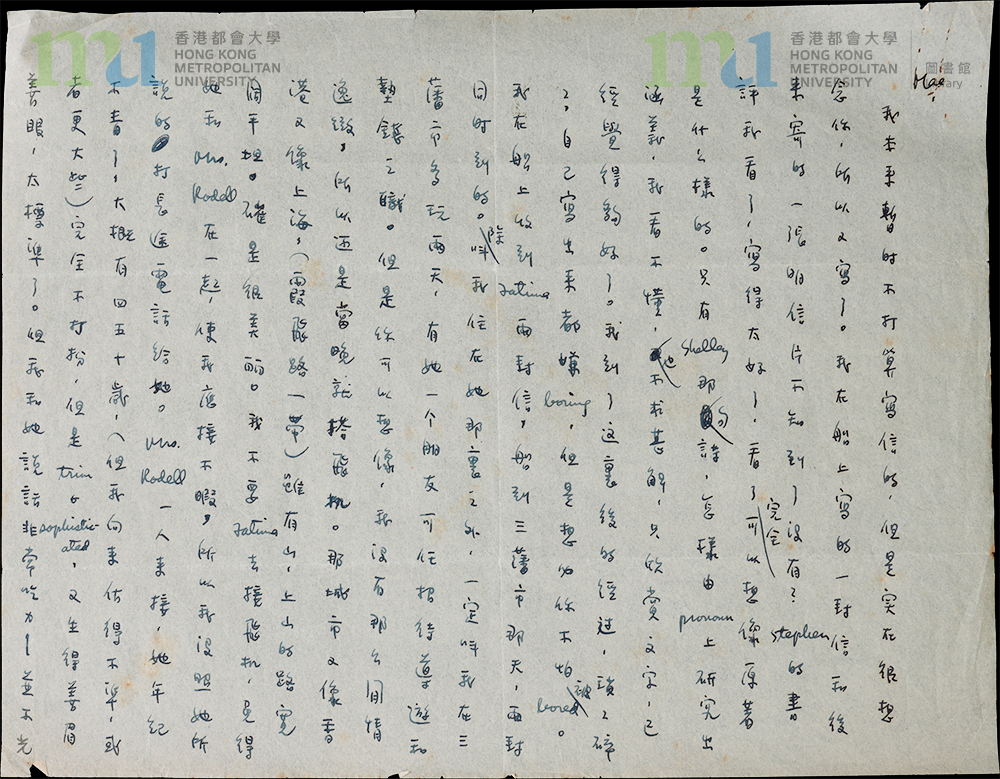 香港都會大學
HONG KONG
METROPOLITAN
UNIVERSITY
香港都會大學
HONG KONG
METROPOLITAN
UNIVERSITY
圖書館
Library
Mae:
我本來暫時不打算寫信的,但是实在很想
念你,所以又寫了。我在船上寫的一封信和後
來寄的一張明信片不知到了沒有?Stephen的書
評我看了,寫得太好了,看了完全可以想像原著
是什么樣的。只有Shelley那的詩,怎樣由pronoun上研究出
涵義,我看不懂,也不求甚解,只欣賞文字,已
經覺得夠好了。我到了這裏後的經过,瑣々碎
々,自己寫出來都嫌boring,但是想必你不怕被bored。
我在船上收到Fatima兩封信,船到三藩市那天,兩封
同時到的。除叫我住在她那裏之外,一定叫我在三
藩市多玩兩天,有她一个朋友可任招待導遊和
墊錢之職。但是你可以想像,我沒有那么閒情
逸緻,所以还是當晚就搭飛机。那城市又像香
港又像上海,(霞飛路一帶)雖有山,上山的路寬
闊平坦。確是很美丽。我不要Fatima去接飛机,免得
她和Mrs. Rodell在一起,使我應接不暇,所以我沒照她所
說的打長途電話給她。Mrs. Rodell一人來接,她年紀
不青了,大概有四五十歲,(但我向來估得不準,或
者更大些)完全不打扮,但是trim & sophisticated,又生得善眉
善眼,太標準了。但我和她說話非常吃力—並不光